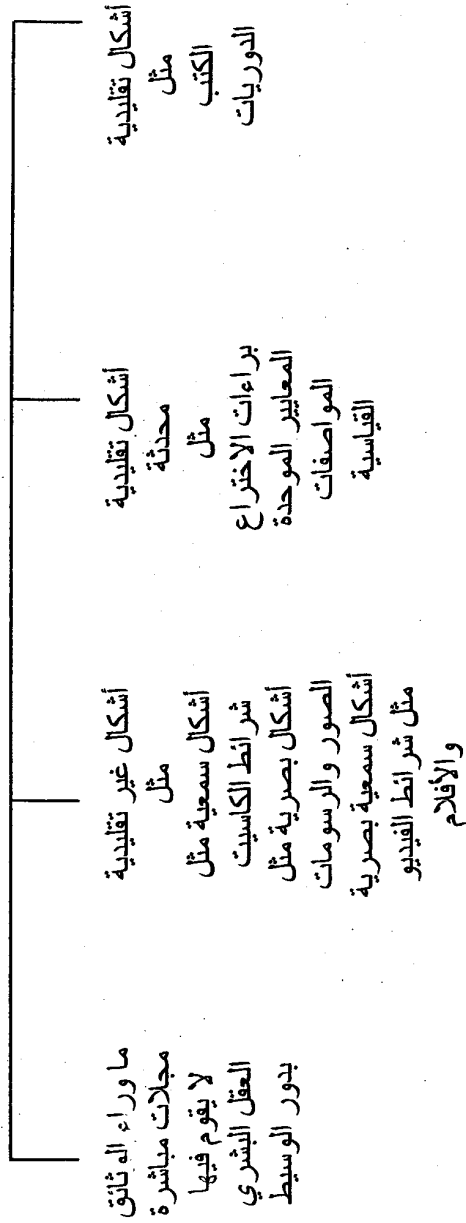 أشكال تقليدية
مثل
الكتب
الدوريات
أشكال تقليدية
محدثة
مثل
براءات الاختراع
المعايير الموحدة
المواصفات
القياسية
أشكال غير تقليدية
مثل
أشكال سمعية مثل
شرائط الكاسيت
أشكال بصرية مثل
الصور والرسومات
أشكال سمعية بصرية
مثل شرائط الفيديو
والأفلام
ما وراء الوثائق
مجلات مباشرة
لا يقوم فيها
العقل البشري
بدور الوسيط